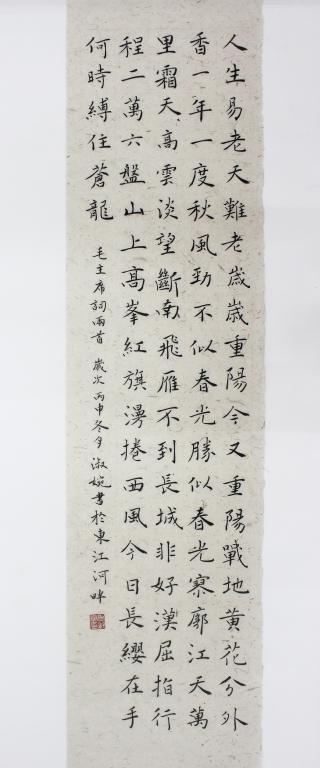 人生易老天難老歲歲重陽今又重陽戰地黃花分外
香一年一度秋風勁不似春光勝似春光寥廓江天萬
里霜天高雲淡望斷南飛雁不到長城非好漢屈指行
程二萬六盤山上高峯紅旗漫捲西風今日長纓在手
何時縛住蒼龍
毛主席詞兩首 歲次丙申冬月淑婉書於東江河畔